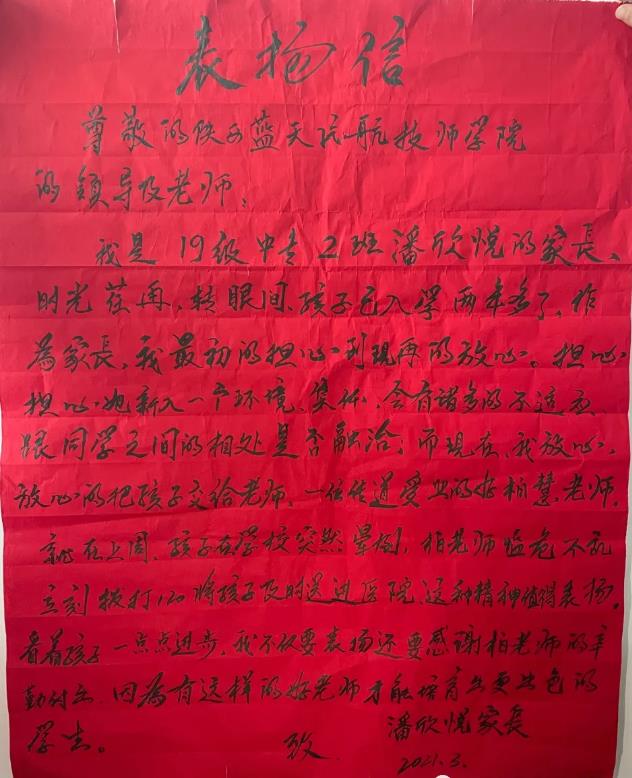 表扬信
尊敬的陕西蓝天民航技师学院
的领导及老师：
我是19级中专2班潘欣悦的家長、
时光荏苒，转眼间、孩子已入学两年多了，作
為家長，我最初的担心到现再的放心。担心
担心她新入一个环境、集体，会有诸多的不适应
跟同学之间的相处是否融洽；而现在，我放心，
放心的把孩子交给老师、一位传道受业的好柏慧老师，
就在上周，孩子在学校突然晕倒，柏老师临危不乱
立刻拨打120将孩子及时送进医院，这种精神值得表扬。
看着孩子一点点进步，我不仅要表扬还要感谢柏老师的辛
勤付出，因為有这样的好老师才能培育出更出色的
学生。
致
潘欣悦家長
2021.3.